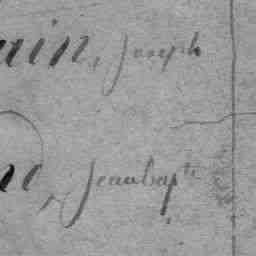 ain, Joseph
ne, Jeanbapte